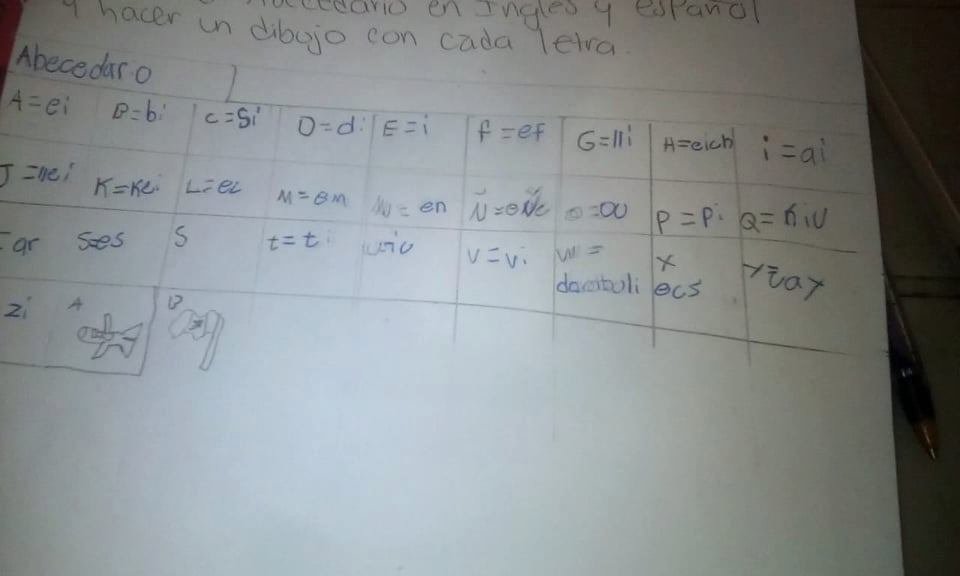 y hacer un dibujo con cada letra.
en Ingles y español
Abecedar o
A=ei B=bi C=Si D=di E=i F=ef G=lli H=eich i=ai
J=llei K=Kei L=el M=em N=en Ñ=eÑe O=OU P=Pi Q=KiU
ar S=es S t=ti V=Vi W= X Y=
ecs
zi A B